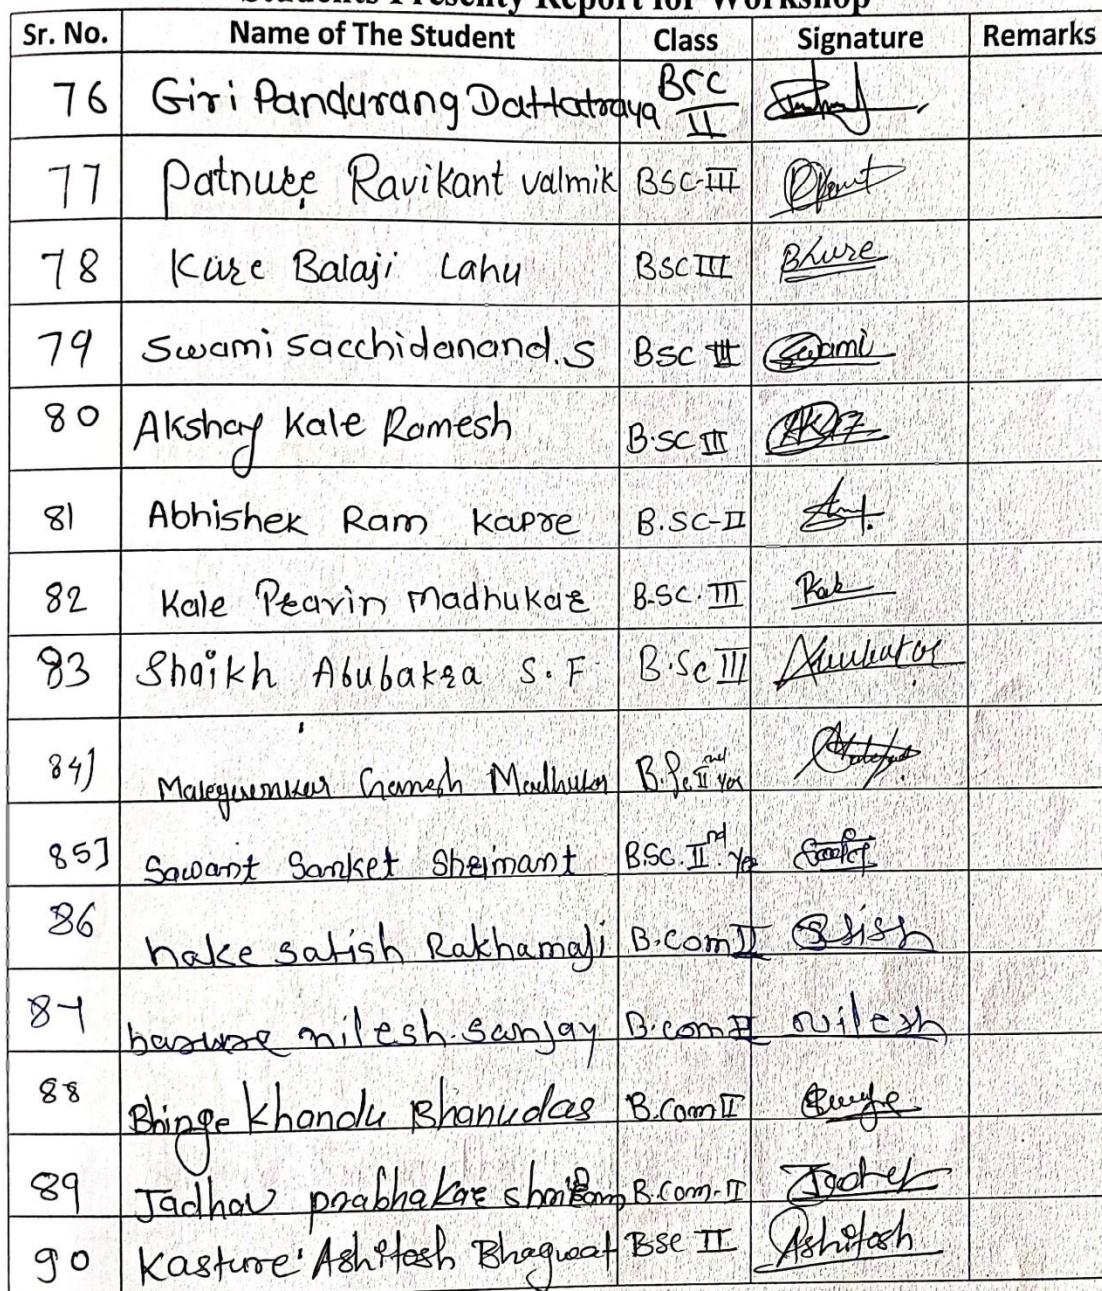 Students Presenty Report for Workshop
Sr. No. Name of The Student Class Signature Remarks
76 Giri Pandurang Dattatraya BSC II
77 Patnure Ravikant valmik BSC-III
78 Kure Balaji Lahu BSC III BKure
79 Swami sacchidanand.S BSC III Swami
80 Akshay Kale Ramesh B.SC III
81 Abhishek Ram Kapre B.SC-II
82 Kale Pravin Madhukar B.SC. III
83 Shaikh Abubakra S.F. B.Sc III
84] Ganesh Madhukar B.Sc II nd year
85] Sawant Sanket Shrimant BSC. II nd Ye
86 hake Satish Rakhamaji B.com II Stish
87 basure nilesh.sanjay B.com II nilesh
88 Bhinge Khandu Bhanudas B.Com II
89 Jadhav prabhakar shriram B.Com-II Jadhav
90 Kasture Ashitosh Bhagwat BSC II Ashitosh